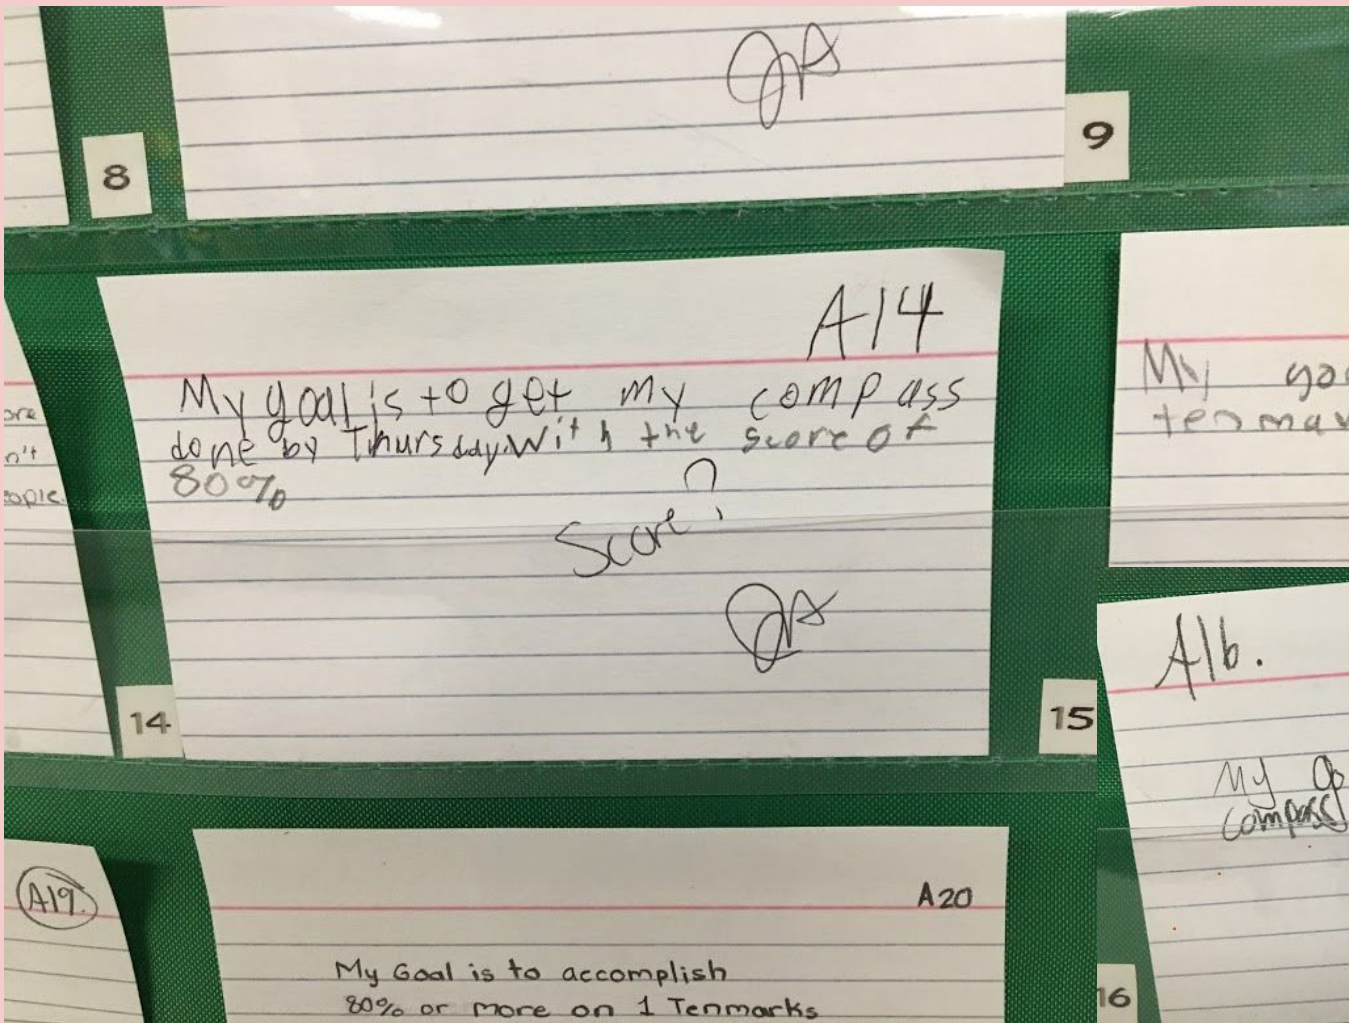 8
9
A14
My goal is to get my compass
done by Thursday. With the score of
80%
Score?
ore
n't
ople.
My goa
tenmar
14
15
A16.
My go
compass
A19.
A20
My Goal is to accomplish
80% or more on 1 Tenmarks
16